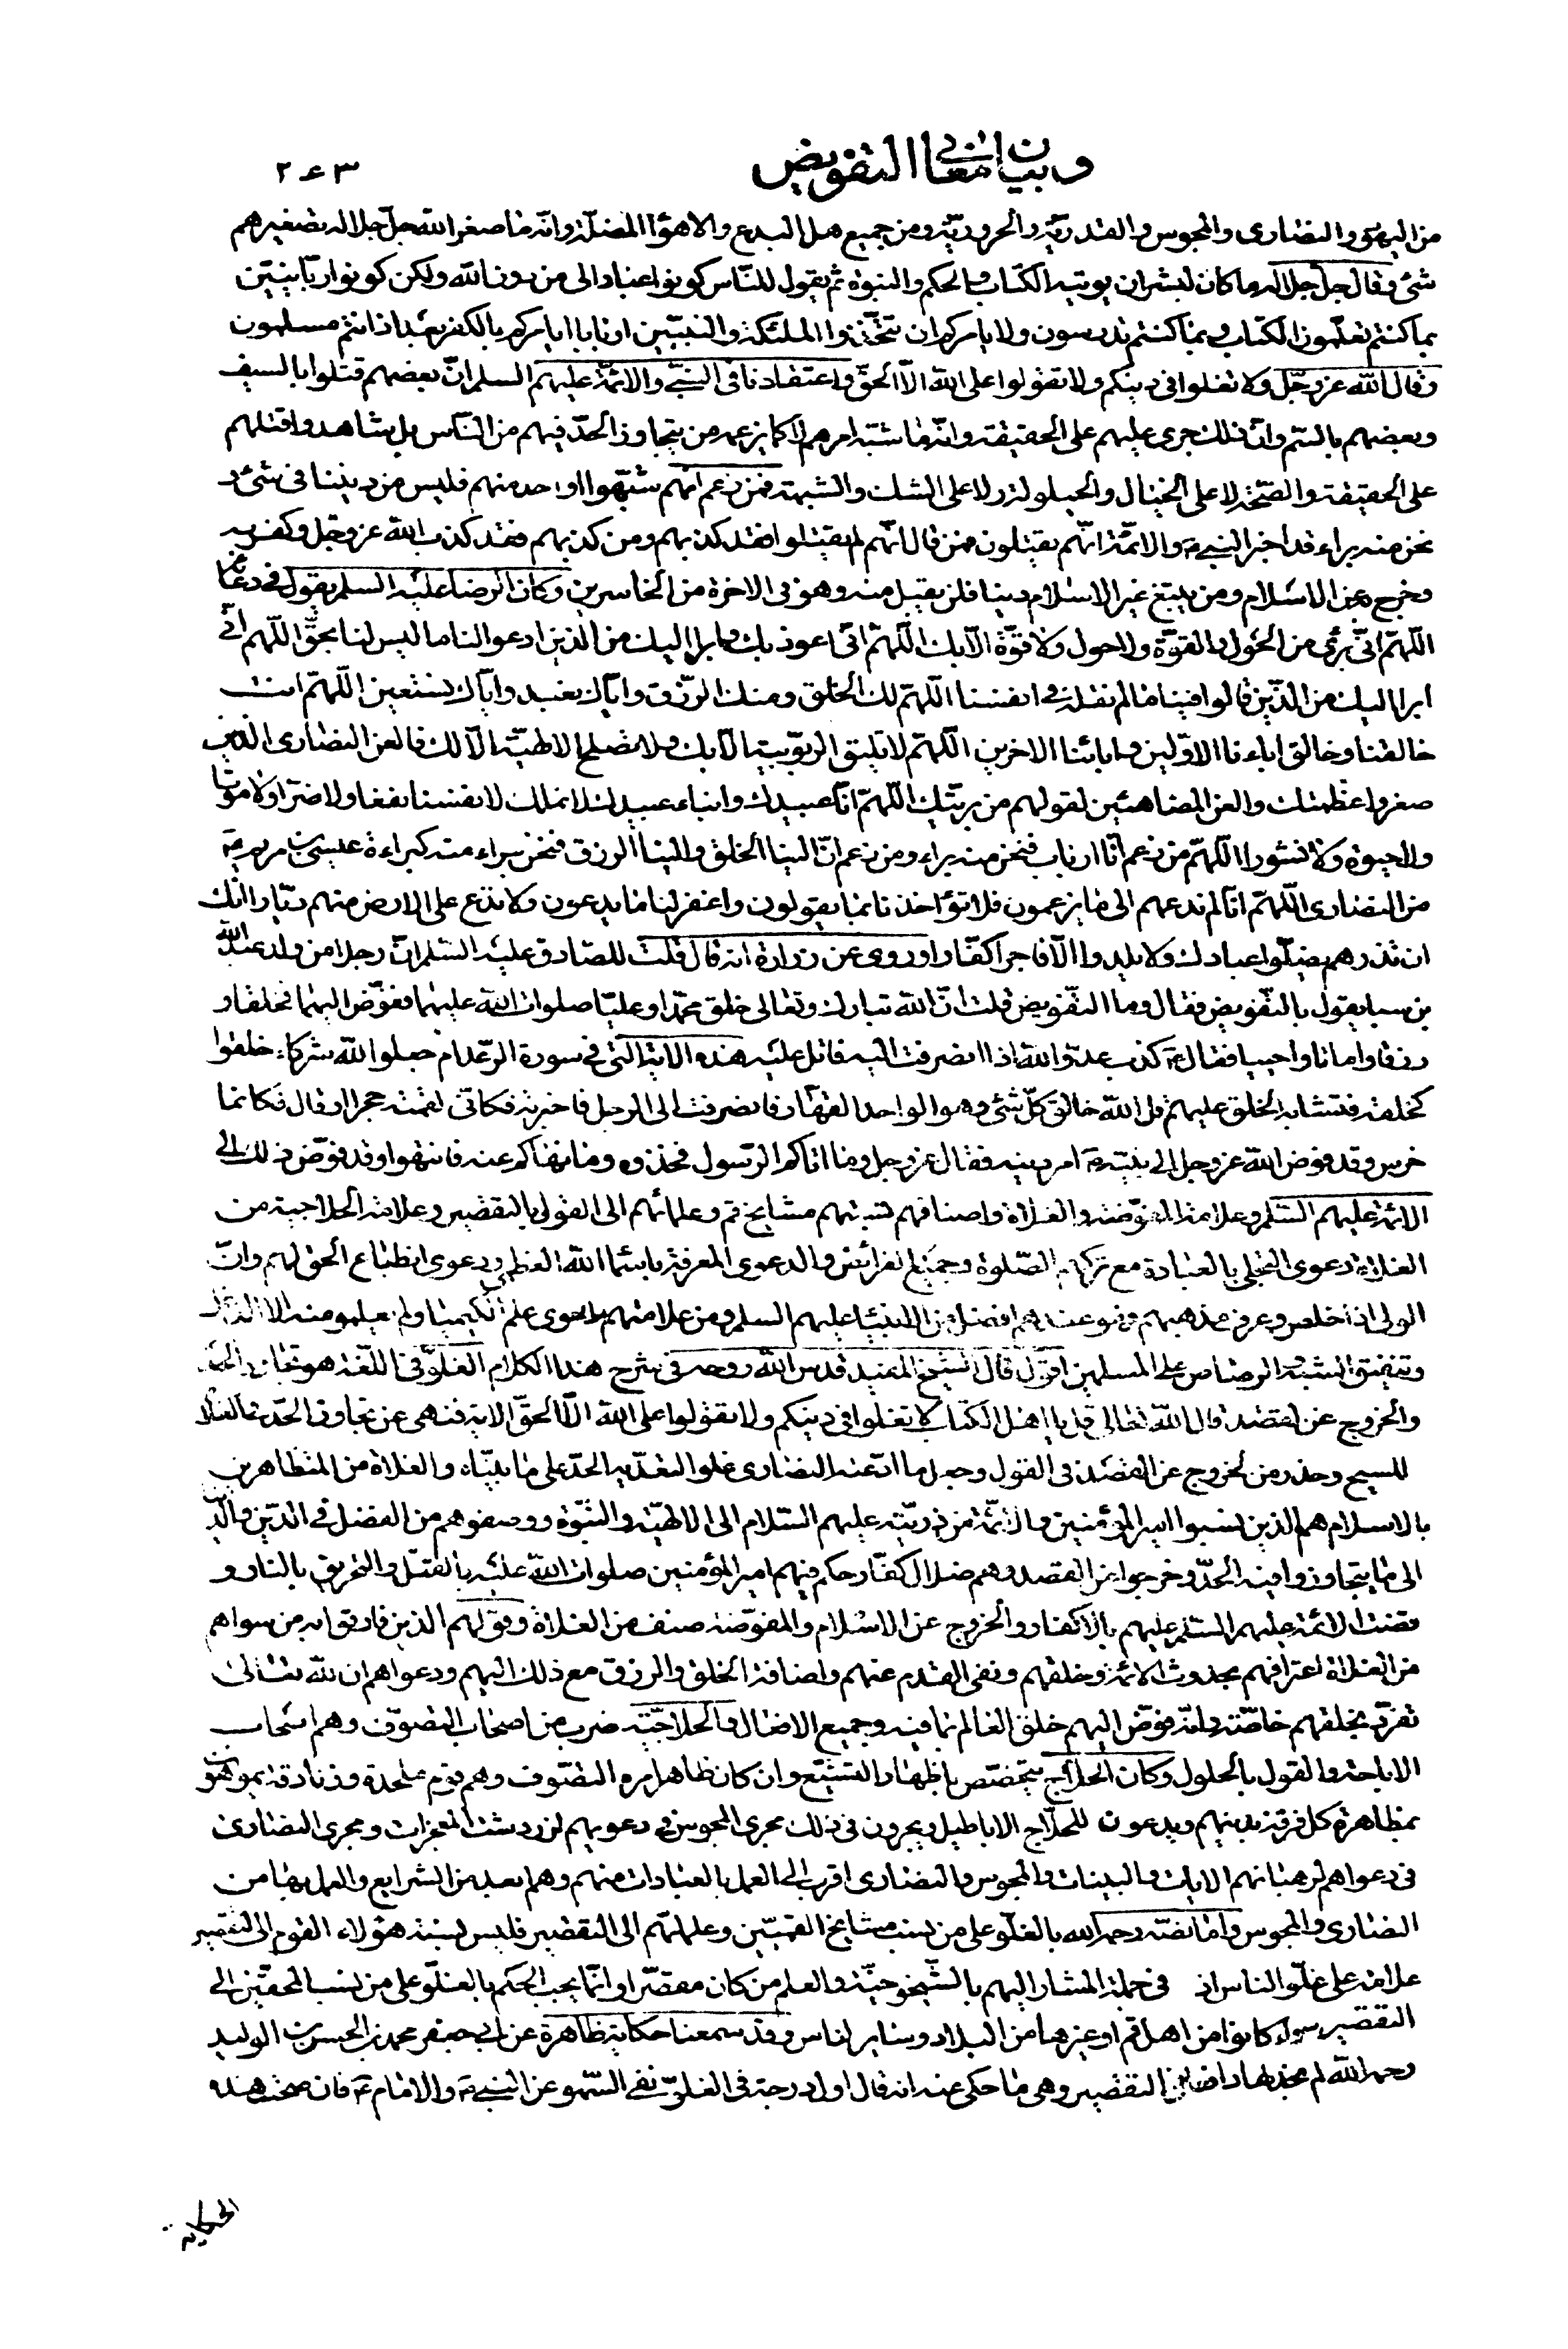 وبيان معاني التفويض
٢٤٣
من اليهود والنصارى والمجوس والقدرية والحرورية ومن جميع اهل البدع والاهواء المضلة وانه ما صغر الله جل جلاله تصغيرهم
شئ وقال جل جلاله ما كان لبشر ان يوتيه الكتاب والحكم والنبوة ثم يقول للناس كونوا عبادا لى من دون الله ولكن كونوا ربانيين
بما كنتم تعلمون الكتاب وبما كنتم تدرسون ولا يامركم ان تتخذوا الملئكة والنبيين اربابا ايامركم بالكفر بعد اذ انتم مسلمون
وقال الله عز وجل ولا تغلوا فى دينكم ولا تقولوا على الله الا الحق واعتقادنا فى النبى والائمة عليهم السلم ان بعضهم قتلوا بالسيف
وبعضهم بالسم وان ذلك جرى عليهم على الحقيقة وانه ما شبه امرهم لا كما يزعمه من يتجاوز الحد فيهم من الناس بل شاهدوا قتلهم
على الحقيقة والصحة لا على الخيال والحيلولة ولا على الشك والشبهة فمن زعم انهم شبهوا او احد منهم فليس من ديننا فى شئ و
نحن منه براء وقد اخبر النبى ص والائمة انهم يقتلون فمن قال انهم لم يقتلوا فقد كذبهم ومن كذبهم فقد كذب الله عز وجل وكفر به
وخرج عن الاسلام ومن يبتغ غير الاسلام دينا فلن يقبل منه وهو فى الاخرة من الخاسرين وكان الرضا عليه السلم يقول فى دعائه
اللهم انى برئ من الحول والقوة ولا حول ولا قوة الا بك اللهم انى اعوذ بك وابرا اليك من الذين ادعوا لنا ما ليس لنا بحق اللهم انى
ابرا اليك من الذين قالوا فينا ما لم نقله فى انفسنا اللهم لك الخلق ومنك الرزق واياك نعبد واياك نستعين اللهم انت
خالقنا وخالق اباءنا الاولين وابائنا الاخرين اللهم لا تليق الربوبية الا بك ولا تصلح الالهية الا لك فالعن النصارى الذين
صغروا عظمتك والعن المضاهئين لقولهم من بريتك اللهم انا عبيدك وابناء عبيدك لا نملك لانفسنا نفعا ولا ضرا ولا موتا
ولا حيوة ولا نشورا اللهم من زعم انا ارباب فنحن منه براء ومن زعم ان الينا الخلق والينا الرزق فنحن براء منه كبراءة عيسى بن مريم ع
من النصارى اللهم انا لم ندعهم الى ما يزعمون فلا تؤاخذنا بما يقولون واغفر لنا ما يدعون ولا تدع على الارض منهم ديارا انك
ان تذرهم يضلوا عبادك ولا يلدوا الا فاجرا كفارا وروى عن زرارة انه قال قلت للصادق عليه السلم ان رجلا من ولد عبد الله
بن سبا يقول بالتفويض فقال وما التفويض قلت ان الله تبارك وتعالى خلق محمدا وعليا صلوات الله عليهما ففوض اليهما فخلقا و
رزقا واماتا واحييا فقال ع كذب عدو الله اذا انصرفت اليه فاتل عليه هذه الاية التى فى سورة الرعد ام جعلوا لله شركاء خلقوا
كخلقه فتشابه الخلق عليهم قل الله خالق كل شئ وهو الواحد القهار فانصرفت الى الرجل فاخبرته فكانى القمته حجرا او قال فكانما
خرس وقد فوض الله عز وجل الى نبيه ص امر دينه فقال عز وجل وما اتاكم الرسول فخذوه وما نهاكم عنه فانتهوا وقد فوض ذلك الى
الائمة عليهم السلم وعلامة المفوضة والغلاة واصنافهم نسبتهم مشايخ قم وعلمائهم الى القول بالتقصير وعلامة الحلاجية من
الغلاة دعوى التجلى بالعبادة مع تركهم الصلوة وجميع الفرائض والدعوى المعرفة باسماء الله العظمى ودعوى انطباع الحق لهم وان
الولى اذا خلص وعرف مذهبهم فهو عندهم افضل من الانبياء عليهم السلم ومن علامتهم دعوى علم الكيميا ولم يعلمو منه الا الدغل
وتنفيق الشبه والرصاص على المسلمين اقول قال الشيخ المفيد قدس الله روحه فى شرح هذا الكلام الغلو فى اللغة هو تجاوز الحد
والخروج عن القصد قال الله تعالى قل يا اهل الكتاب لا تغلوا فى دينكم ولا تقولوا على الله الا الحق الاية فنهى عن تجاوز الحد فى الغلو
للمسيح وحذر من الخروج عن القصد فى القول وجعل ما ادعته النصارى غلوا لتعديه الحد على ما بيناه والغلاة من المتظاهرين
بالاسلام هم الذين نسبوا امير المؤمنين والائمة من ذريته عليهم السلام الى الالهية والنبوة ووصفوهم من الفضل فى الدين والدنيا
الى ما يتجاوزوا فيه الحد وخرجوا عن القصد وهم ضلال كفار حكم فيهم امير المؤمنين صلوات الله عليه بالقتل والتحريق بالنار و
قضت الائمة عليهم السلم عليهم بالاكفار والخروج عن الاسلام والمفوضة صنف من الغلاة وقولهم الذين فارقوا به من سواهم
من الغلاة اعترافهم بحدوث الائمة وخلقهم ونفى القدم عنهم واضافة الخلق والرزق مع ذلك اليهم ودعواهم ان الله تعالى
تفرد بخلقهم خاصة وانه فوض اليهم خلق العالم بما فيه وجميع الافعال والحلاجية ضرب من اصحاب التصوف وهم اصحاب
الاباحة والقول بالحلول وكان الحلاج يتخصص باظهار التشيع وان كان ظاهر امره التصوف وهم قوم ملحدة وزنادقة يموهون
بمظاهرة كل فرقة بدينهم ويدعون للحلاج الاباطيل ويجرون فى ذلك مجرى المجوس فى دعويهم لزردشت المعجزات ومجرى النصارى
فى دعواهم لرهبانهم الايات والبينات والمجوس والنصارى اقرب الى العمل بالعبادات منهم وهم ابعد من الشرايع والعمل بها من
النصارى والمجوس واما نصه رحمه الله بالغلو على من نسب مشايخ القميين وعلمائهم الى التقصير فليس نسبة هؤلاء القوم الى التقصير
علامة على غلو الناس اذ فى جملة المشار اليهم بالشيخوخية والعلم من كان مقصرا وانما يجب الحكم بالغلو على من نسب المحقين الى
التقصير سواء كانوا من اهل قم او غيرها من البلاد وساير الناس وقد سمعنا حكاية ظاهرة عن ابى جعفر محمد بن الحسن بن الوليد
رحمه الله لم نجد لها دافعا فى التقصير وهى ما حكى عنه انه قال اول درجة فى الغلو نفى السهو عن النبى ص والامام ع فان صحت هذه
الحكاية